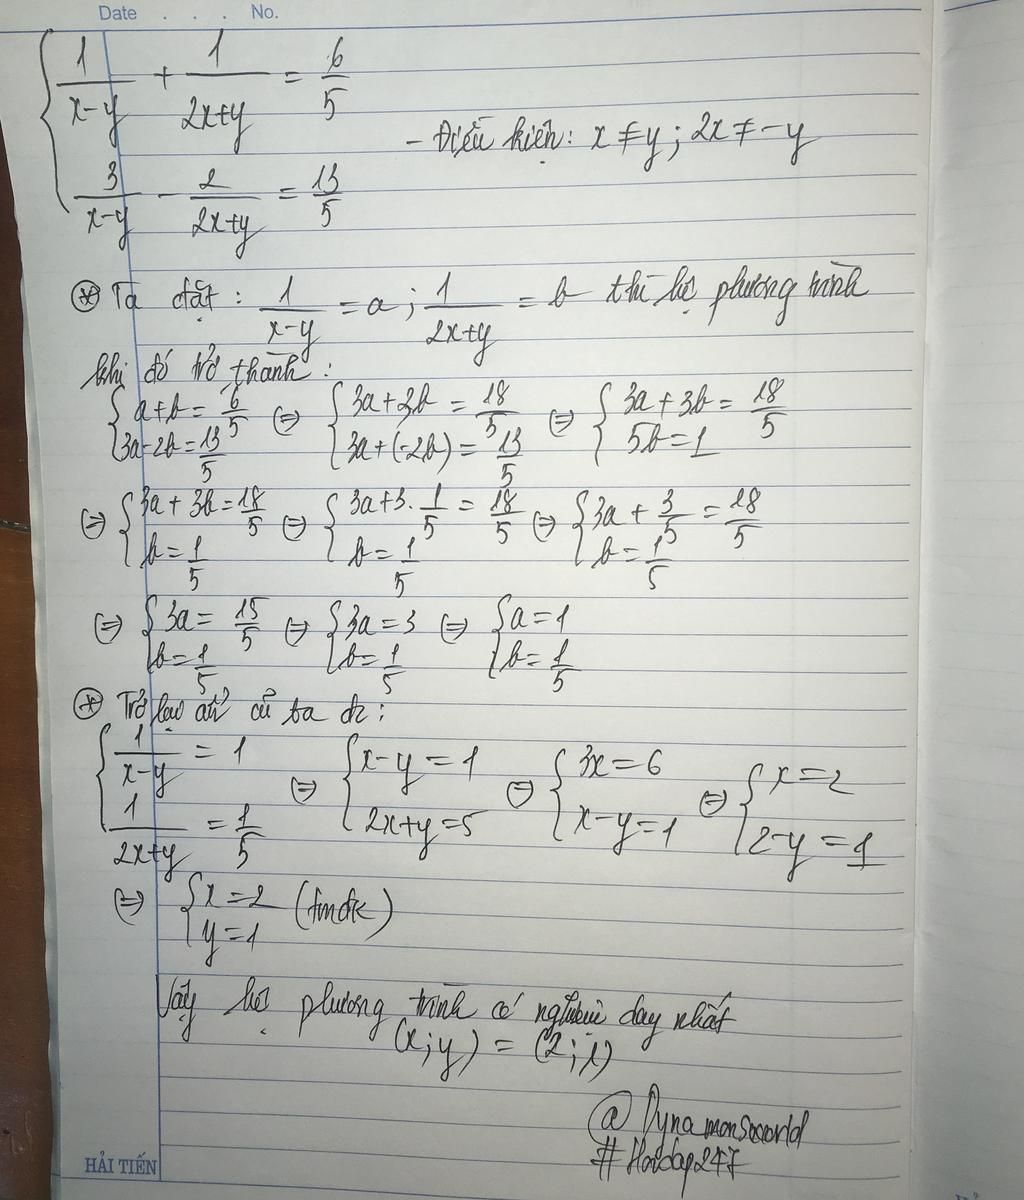 Date . . . No.
{ 1/(x-y) + 1/(2x+y) = 6/5
- Điều kiện: x ≠ y ; 2x ≠ -y
3/(x-y) - 2/(2x+y) = 13/5
⊛ Ta đặt : 1/(x-y) = a ; 1/(2x+y) = b thì hệ phương trình
khi đó trở thành :
{ a+b = 6/5 ; 3a-2b = 13/5 (=) { 3a+3b = 18/5 ; 3a+(-2b) = 13/5 (=) { 3a+3b = 18/5 ; 5b=1
(=) { 3a+3b = 18/5 ; b = 1/5 (=) { 3a+3.1/5 = 18/5 ; b = 1/5 (=) { 3a + 3/5 = 18/5 ; b = 1/5
(=) { 3a = 15/5 ; b = 1/5 (=) { 3a = 3 ; b = 1/5 (=) { a = 1 ; b = 1/5
⊛ Trở lại ẩn cũ ta đc :
{ 1/(x-y) = 1 ; 1/(2x+y) = 1/5 (=) { x-y = 1 ; 2x+y = 5 (=) { 3x = 6 ; x-y = 1 (=) { x = 2 ; 2-y = 1
(=) { x = 2 ; y = 1 (tmđk)
Vậy hệ phương trình có nghiệm duy nhất
(x;y) = (2;1)
@Dynamonsworld
#Hoidap247
HẢI TIẾN